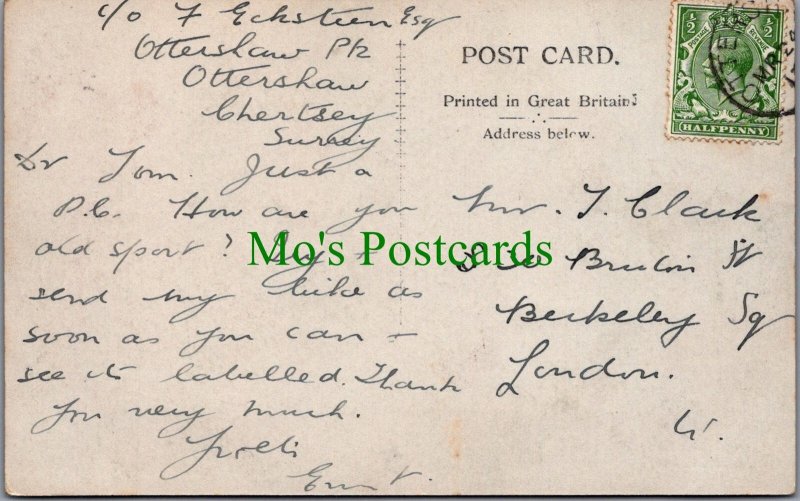 c/o F Eckstein Esq
Ottershaw Pk
Ottershaw
Chertsey
Surrey
Dr Tom. Just a
P.C. How are you
old sport? Try +
send my bike as
soon as you can +
see its labelled. Thank
you very much.
Ernest.
POST CARD.
Printed in Great Britain
Address below.
Mr. T. Clark
Bruton St
Berkeley Sq
London.
W.
½ ½
POSTAGE REVENUE
HALFPENNY
Mo's Postcards